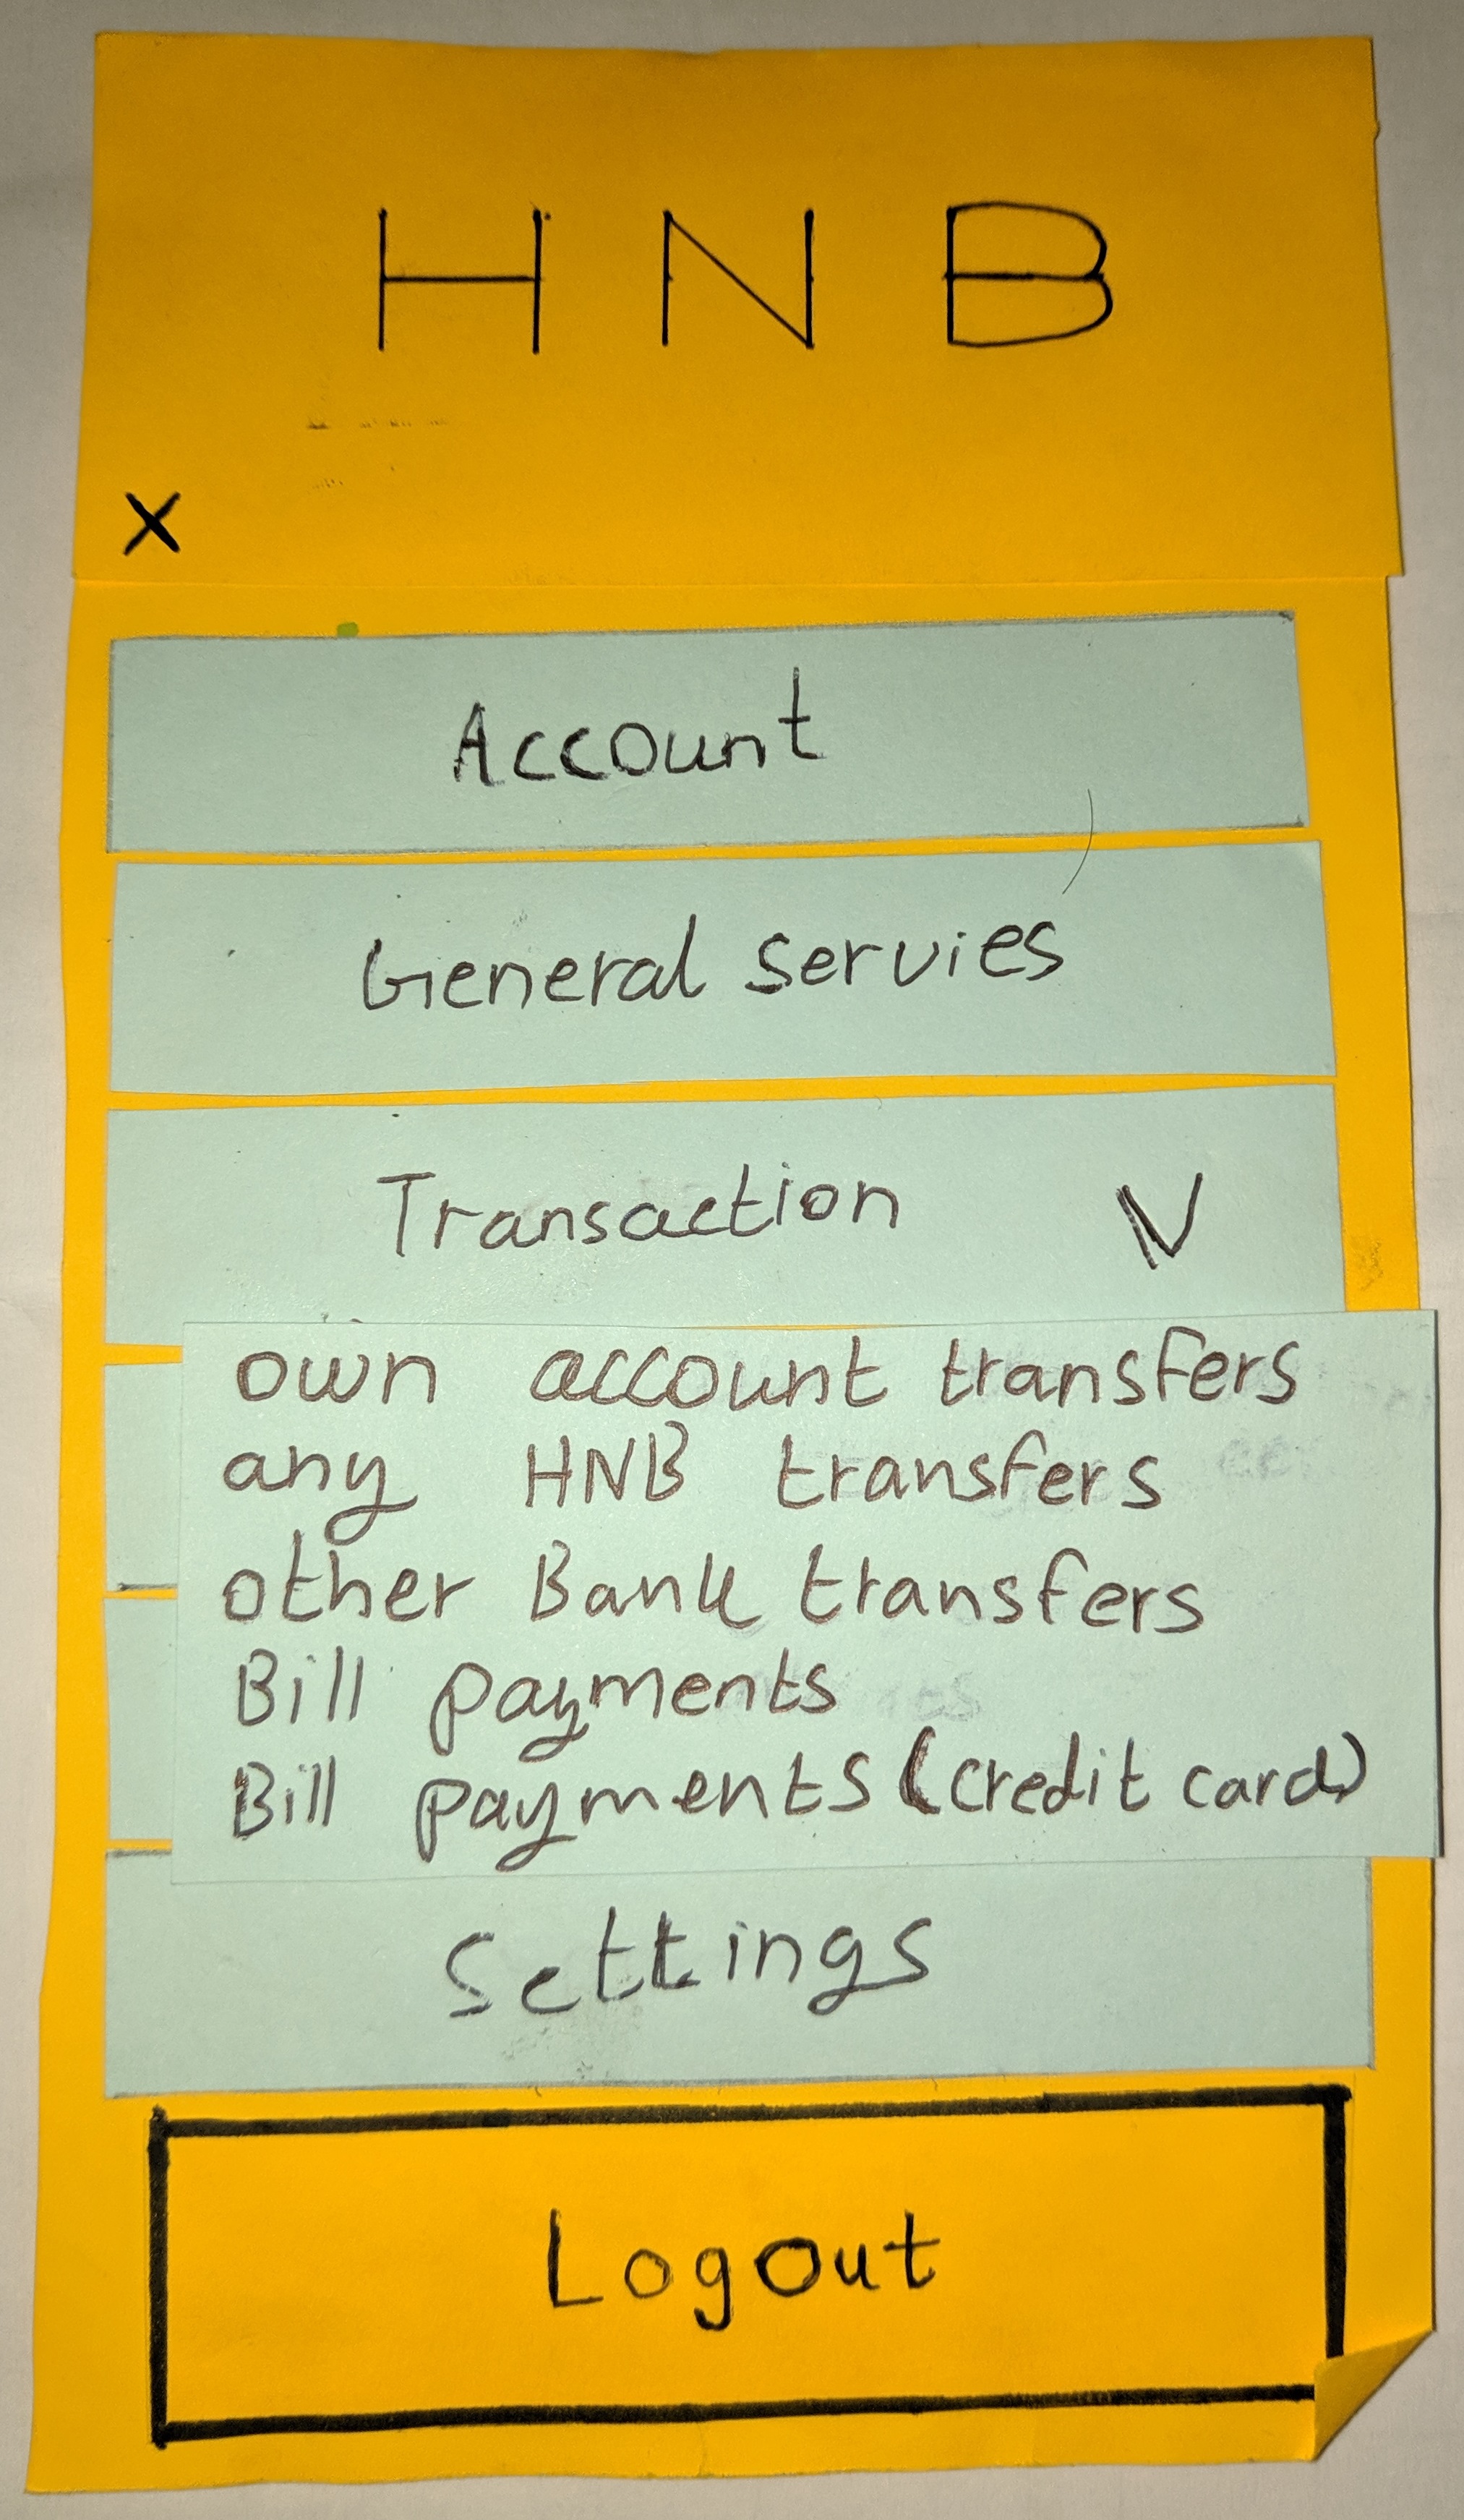 HNB
X
Account
General servies
Transaction V
own account transfers
any HNB transfers
other Bank transfers
Bill payments
Bill payments (credit card)
Settings
Logout